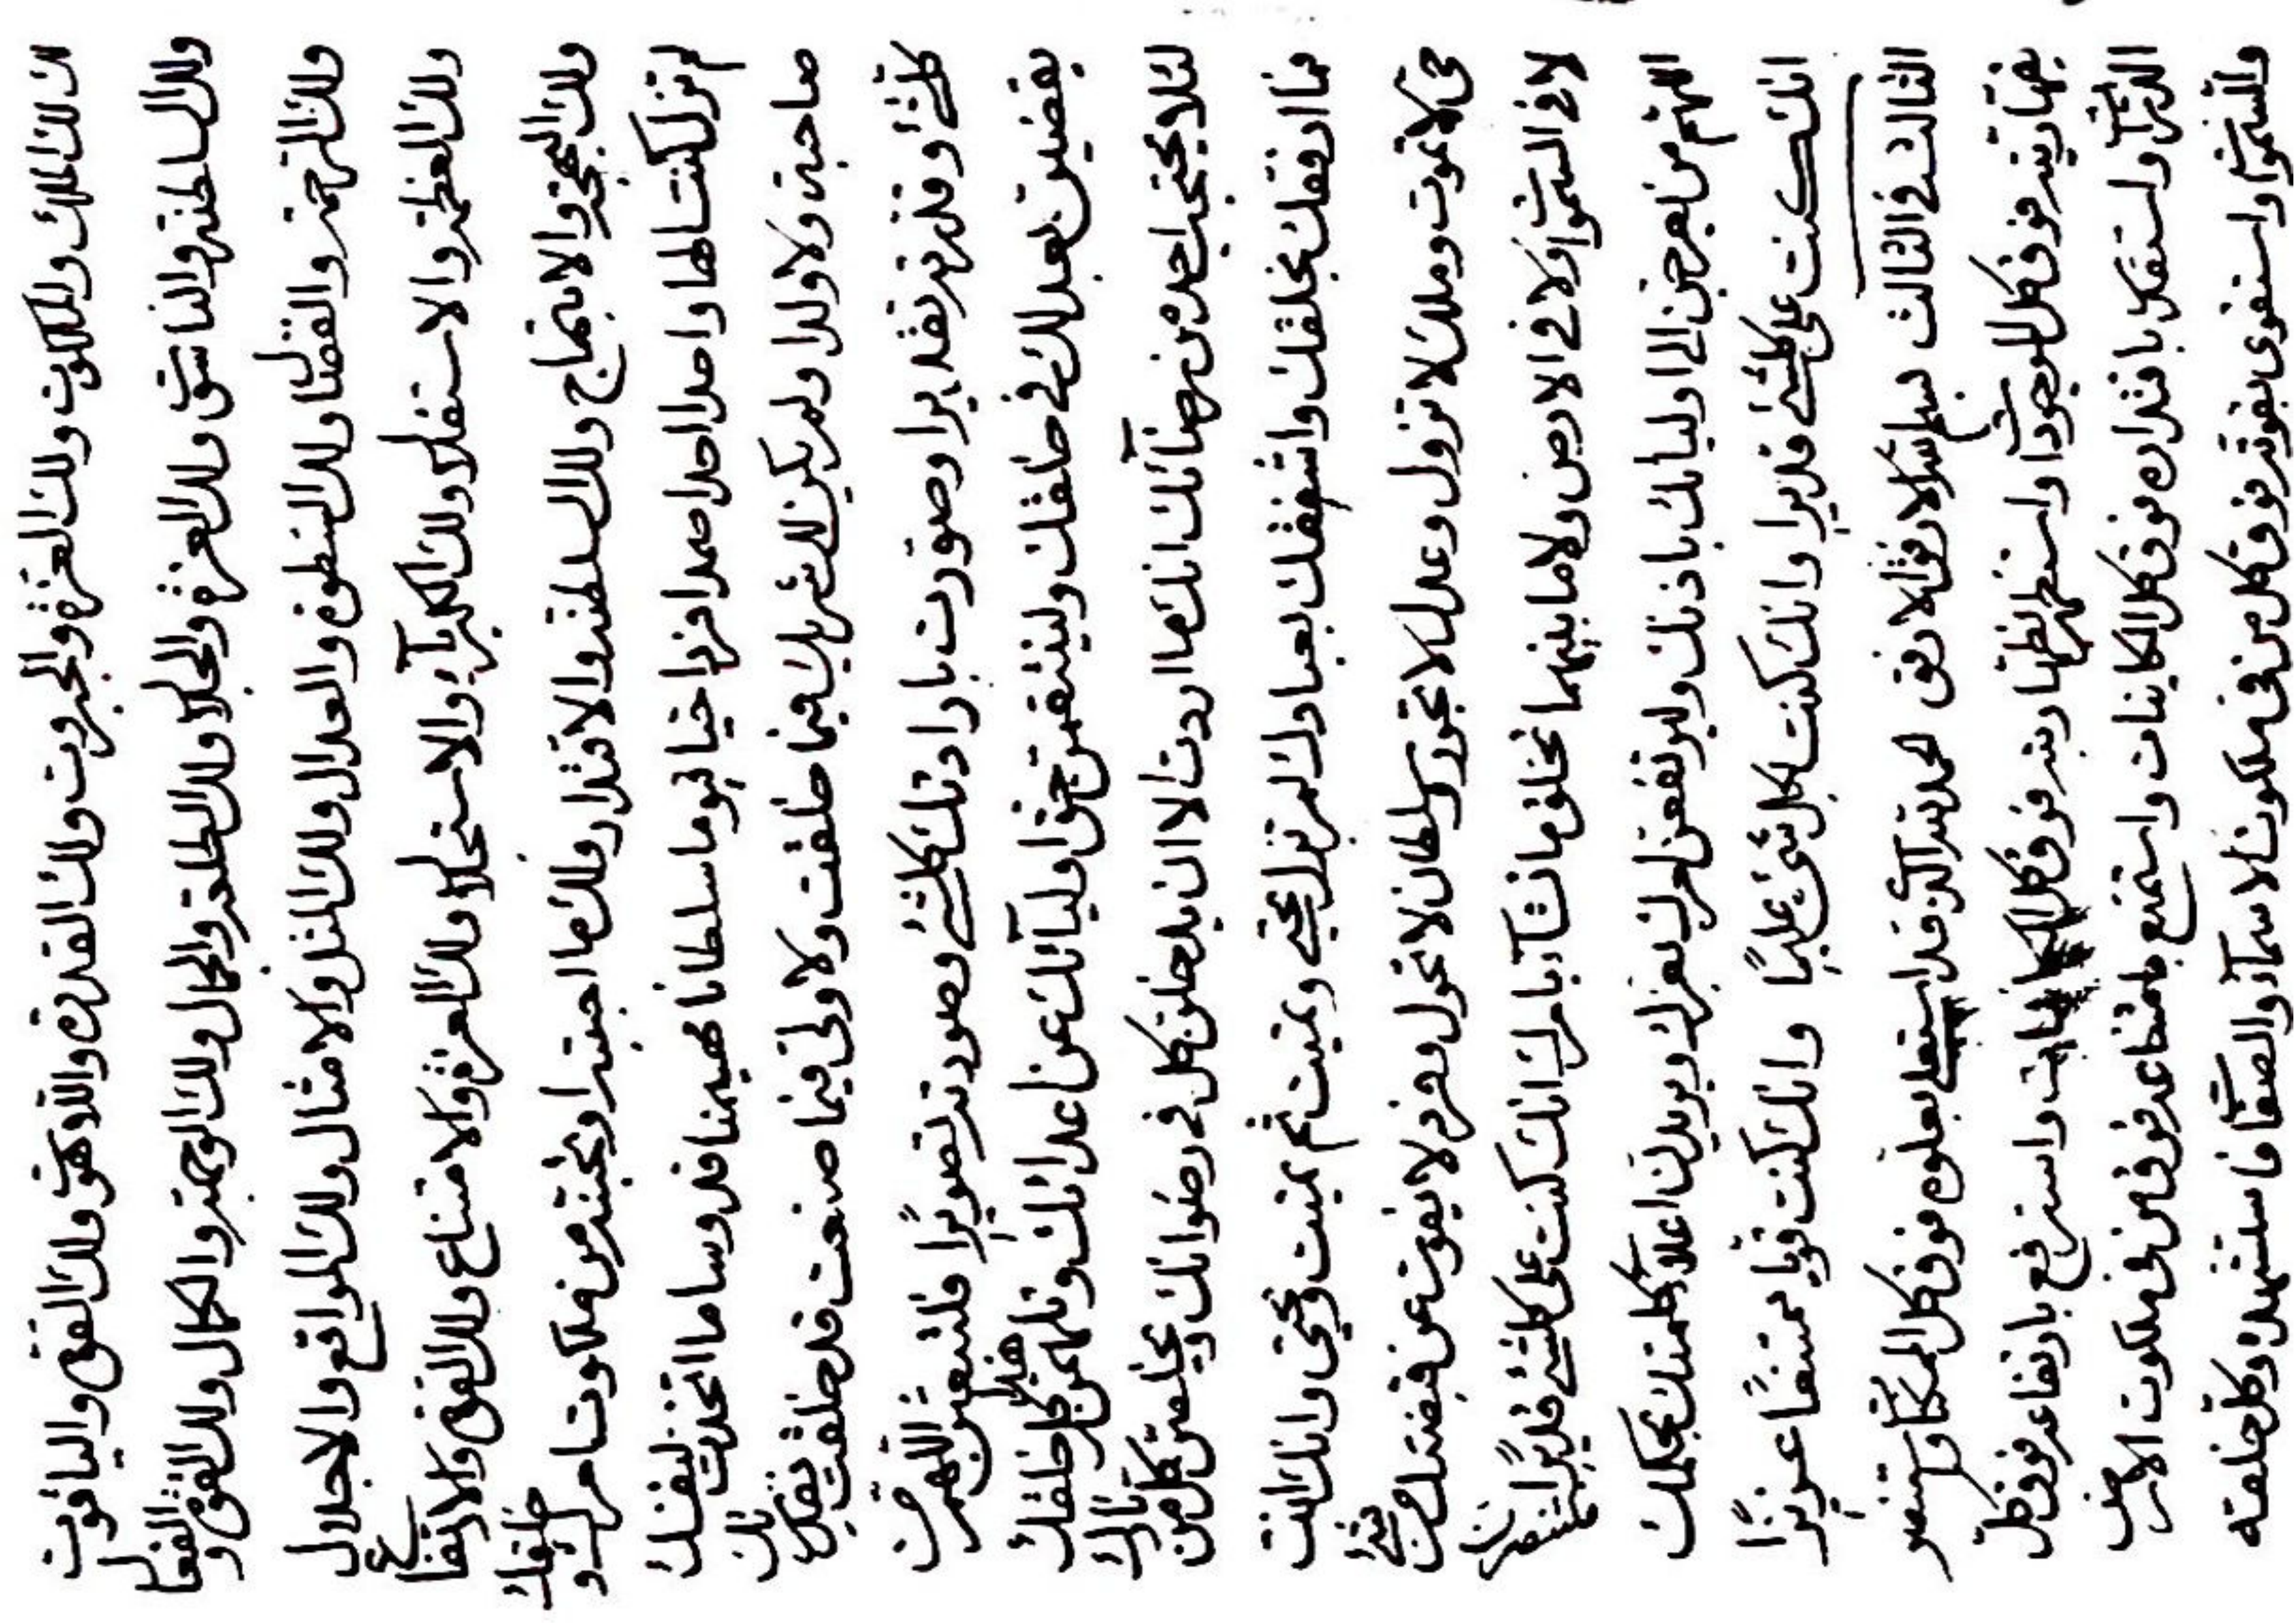 لان لك الملك والملكوت ولك العزة والجبروت ولك القدرة واللاهوت ولك القوة والياقوت
ولك السلطنة والناسوت ولك العزة والجلال ولك الطلعة والجمال ولك الوجهة والكمال ولك القوة والفعال
ولك الرحمة والفضال ولك السطوة والعدال ولك المثل والامثال ولك المواقع والاجلال
ولك العظمة والاستقلال ولك الكبرياء والاستجلال ولك العزة والامتناع ولك القوة والارتفاع
ولك البهجة والابتهاج ولك السلطنة والاقتدار ولك ما احببته او تحبنه من ملكوت امرك و خلقك
لم تزل كنت الها واحدا احدا صمدا فردا حيا قيوما سلطانا مهيمنا قدوسا ما اتخذت لنفسك
صاحبة ولا ولدا ولم يكن لك شريك فيما خلقت ولا ولي فيما صنعت قد خلقت بقدرتك
كلشئ وقدرته تقديرا وصورت بارادتك كلشئ وصورته تصويرا فلتبعثن اللهم من
يقضين بعد لك في خلقك ولينتقمن حق اوليائك عن اعدائك وتلهمن كل خلقك هذا
لئلا يحتجب احد من رضائك انك ما اردت الا ان يدخلن كل في رضوانك ويخلصن كل من نارك
فما ارفقك بخلقك واشفقك بعبادك لم تزل تحيي وتميت ثم تميت وتحيي وانك انت
حي لا تموت وملك لا تزول وعدل لا تجور وسلطان لا تحول وفرد لا يفوت عن قبضتك من شئ
لا في السموات ولا في الارض ولا ما بينهما تخلق ما تشاء بامرك انك كنت على كلشئ قديرا
اللهم من يعرضن الى اوليائك باذنك وليرتفعن امرك بعزك ويريدن اعلاء كلمتك بحكمك
انك كنت على كلشئ قديرا وانك كنت بكل شئ عليما وانك كنت قويا ممتنعا عزيزا
الثالث في الثالث بسم الله الارفق الارفق الحمد لله الذي قد استعلى بعلوه فوق كل الممكنات واستقهر
بقهاريته فوق كل الموجودات واستظهر بظهاريته فوق كل الكائنات واسترفع بارتفاعه فوق كل
الذرات واستقل باقتداره فوق كل الكاينات واستمنع بامتناعه فوق من في ملكوت الارض
والسموات واستقوى بقوته فوق كل من في ملكوت الاسماء والصفات فاستشهده وكل خلقه